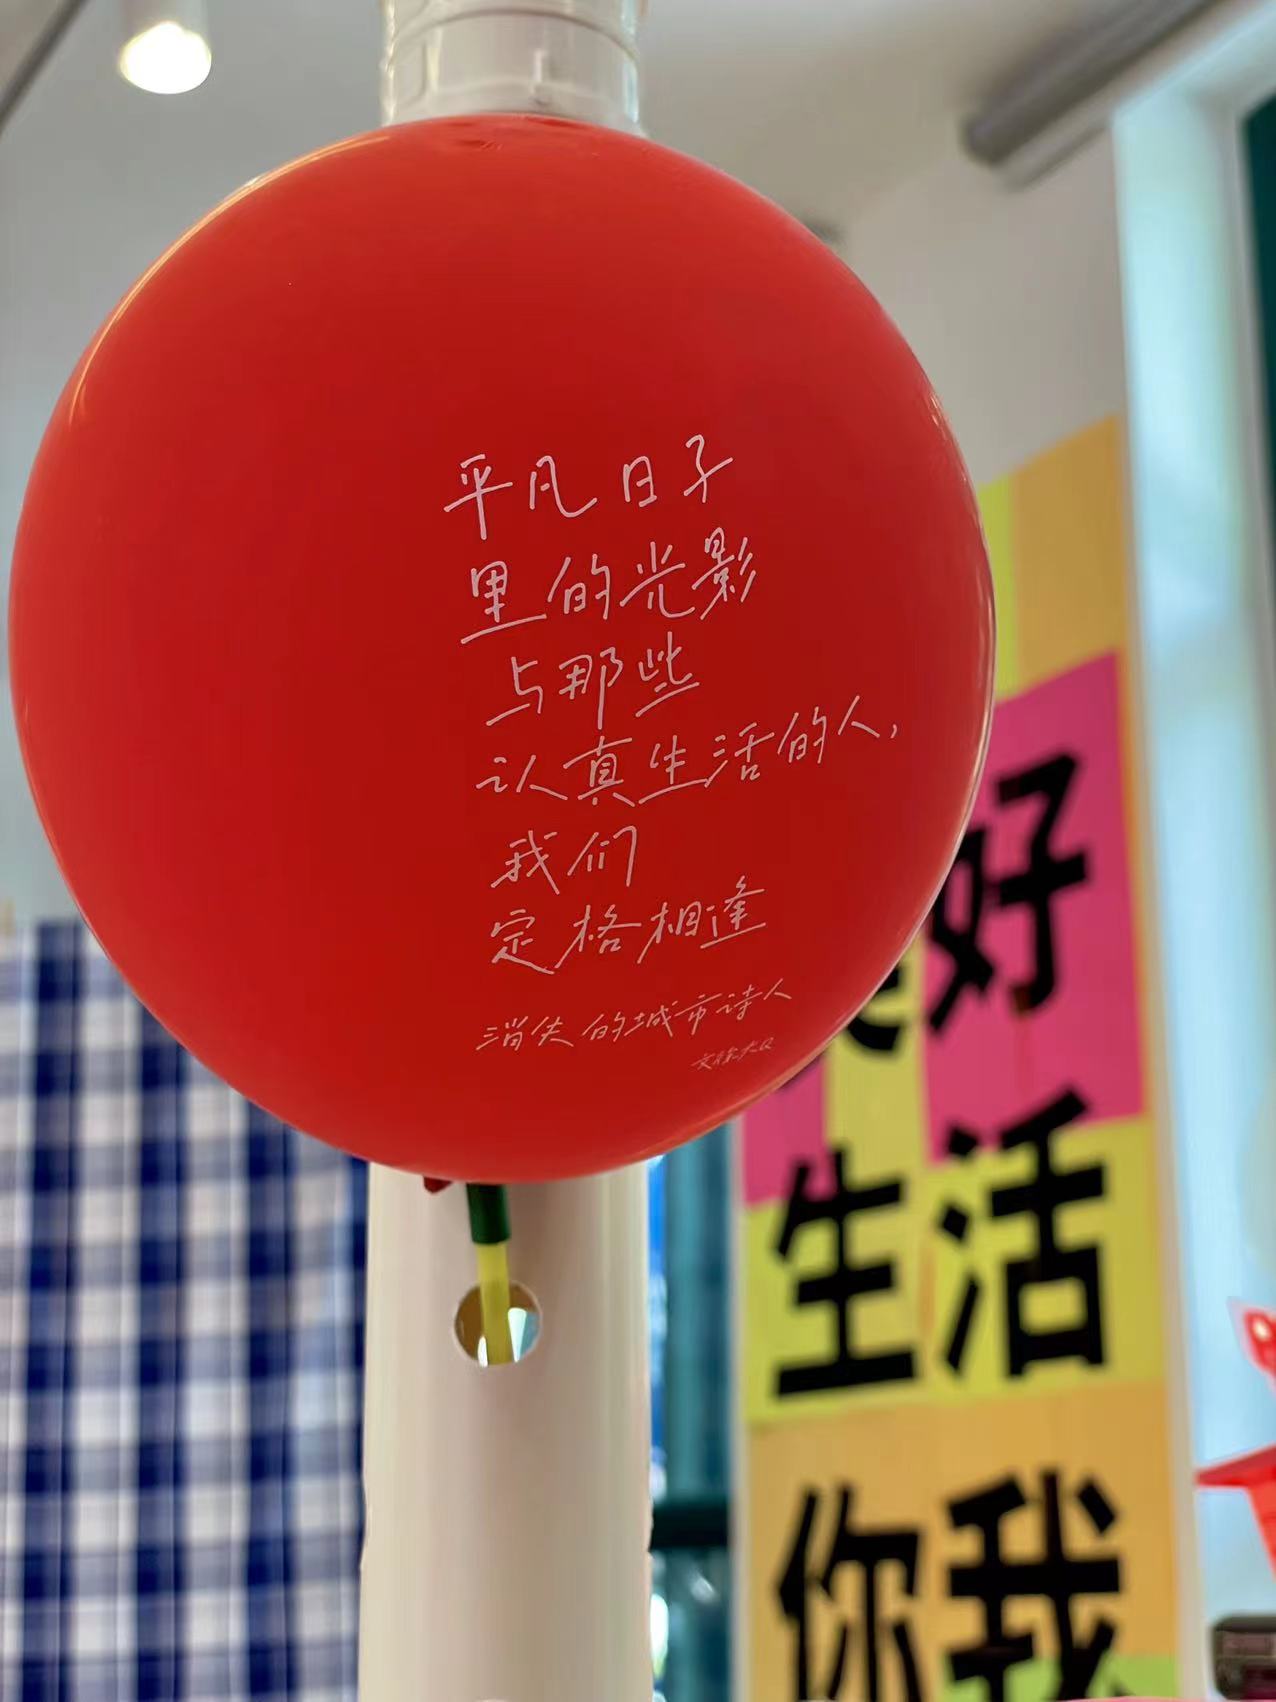 平凡日子
里的光影
与那些
认真生活的人,
我们
定格相逢
消失的城市诗人
好
生活
你我